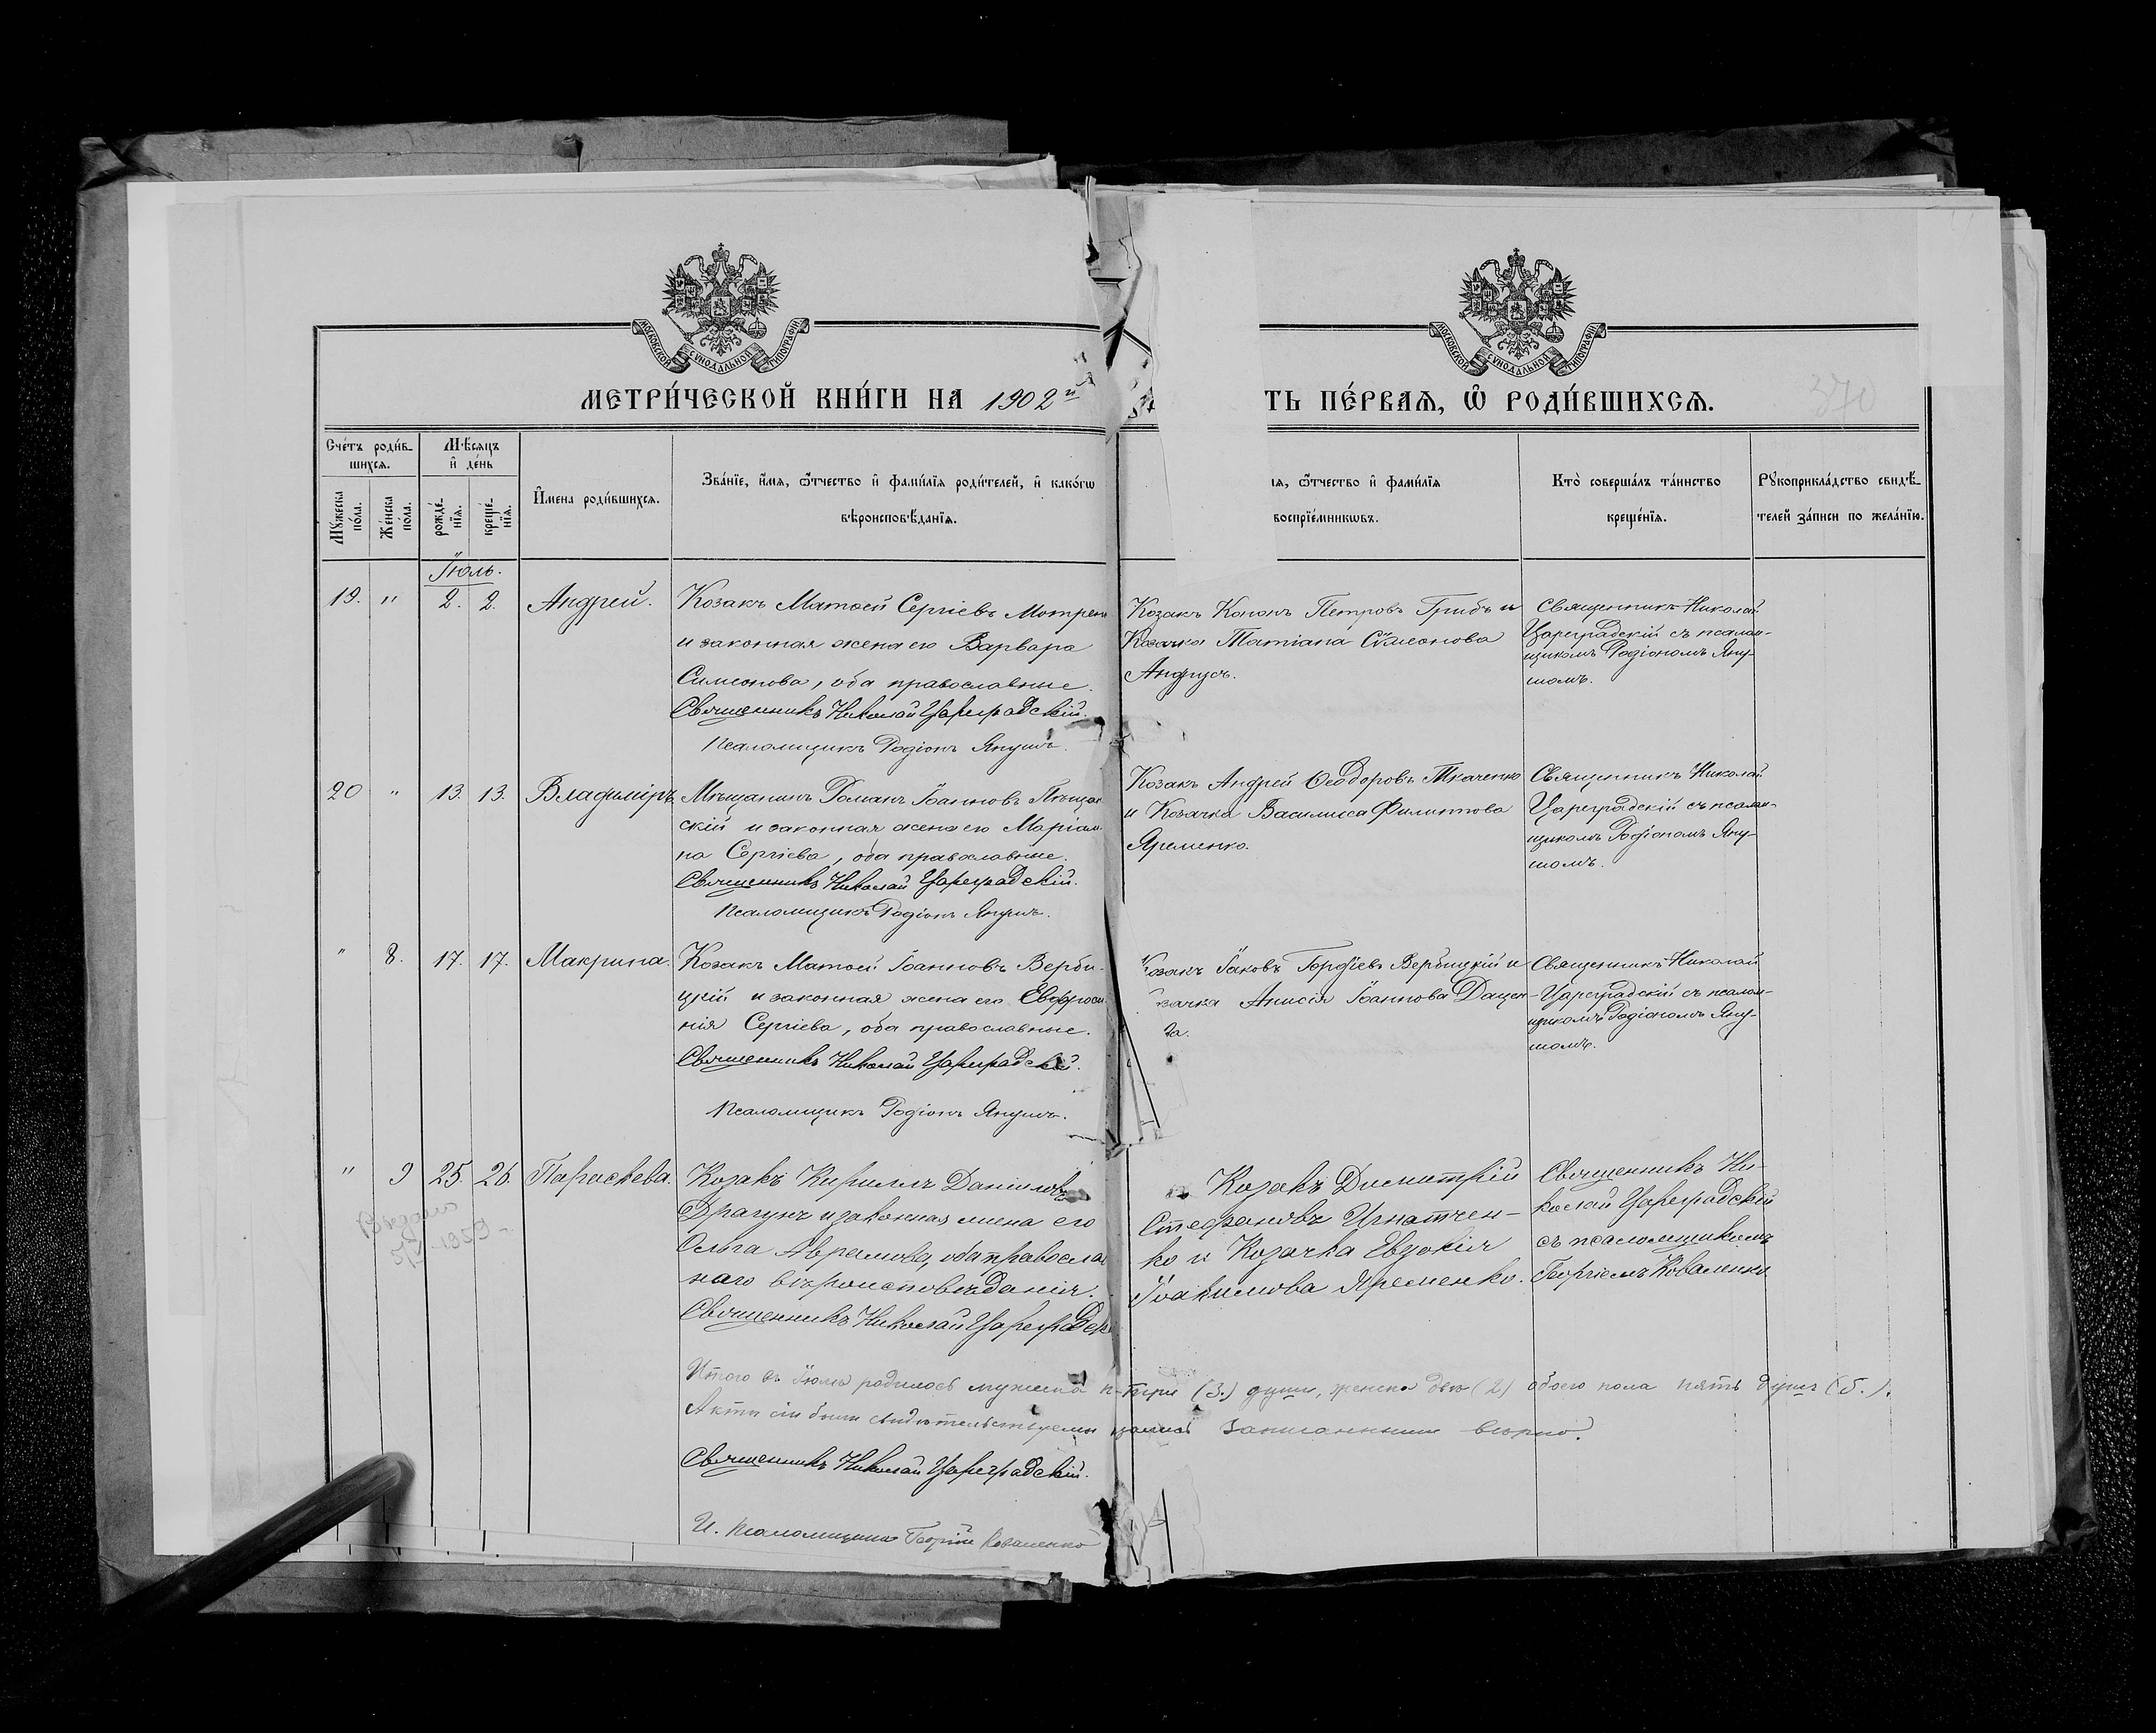 МОСКОВСКОЙ СУНОДАЛЬНОЙ ТИПОГРАФІИ
МОСКОВСКОЙ СУНОДАЛЬНОЙ ТИПОГРАФІИ
МЕТРИ́ЧЕСКОЙ КНИ́ГИ НА 1902й
ТЬ ПЕ́РВАЯ, Ѽ РОДИ́ВШИХСЯ.
370
Сче́тъ роди́в-
шихся.
Мѣ́сяцъ
и҆ де́нь
Мꙋ́жеска
по́ла.
Же́нска
по́ла.
рожде́-
нїя.
креще́-
нїя.
И҆мена роди́вшихся.
Зва́нїе, и҆́мя, ѻ҆́тчество и҆ фами́лїя роди́телей, и҆ како́гѡ
вѣроисповѣ́данїя.
ія, ѻ҆́тчество и҆ фами́лїя
воспрїе́мникѡвъ.
Кто̀ соверша́лъ та́инство
креще́нїя.
Рꙋкоприкла́дство свидѣ́-
телей за́писи по жела́нїю.
Іюль.
19. " 2. 2. Андрей.
Козакъ Матѳей Сергіевъ Мотрен
и законная жена его Варвара
Симеонова, оба православные.
Священникъ Николай Цареградскій.
Псаломщикъ Родіонъ Янушъ.
Козакъ Кононъ Петровъ Грибъ и
Козачка Татіана Симеонова
Андрусъ.
Священникъ Николай
Цареградскій съ псалом-
щикомъ Родіономъ Яну-
шомъ.
20 " 13. 13. Владиміръ.
Мѣщанинъ Романъ Іоанновъ
скій и законная жена его Маріам-
на Сергіева, оба православные.
Священникъ Николай Цареградскій.
Псаломщикъ Родіонъ Янушъ.
Козакъ Андрей Ѳеодоровъ Ткаченко
и Козачка Василиса Филиппова
Яременко.
Священникъ Николай
Цареградскій съ псалом-
щикомъ Родіономъ Яну-
шомъ.
" 8. 17. 17. Макрина.
Козакъ Матѳей Іоанновъ Верби-
цкій и законная жена его Евфроси-
нія Сергіева, оба православные.
Священникъ Николай Цареградскій.
Псаломщикъ Родіонъ Янушъ.
Козакъ Іаковъ Гордіевъ Вербицкій и
зачка Анисія Іоаннова Дацен-
ка.
Священникъ Николай
Цареградскій съ псалом-
щикомъ Родіономъ Яну-
шомъ.
" 9 25. 26. Параскева.
Видано
1959
Козакъ Кириллъ Даніиловъ
Драгунъ и законная жена его
Ольга Аврамова, оба православ
наго вѣроисповѣданія.
Священникъ Николай Цареградск
Козакъ Димитрій
Стефановъ Игнатчен-
ко и Козачка Евдокія
Іоакимова Яременко.
Священникъ Ни-
колай Цареградскій
съ псаломщикомъ
Георгіемъ Коваленко
Итого въ Іюлѣ родилось мужска п три (3.) души, женска двѣ (2) обоего пола пять душъ (5.).
Акты сіи были записанными вѣрно.
Священникъ Николай Цареградскій.
И. Псаломщика Георгій Коваленко